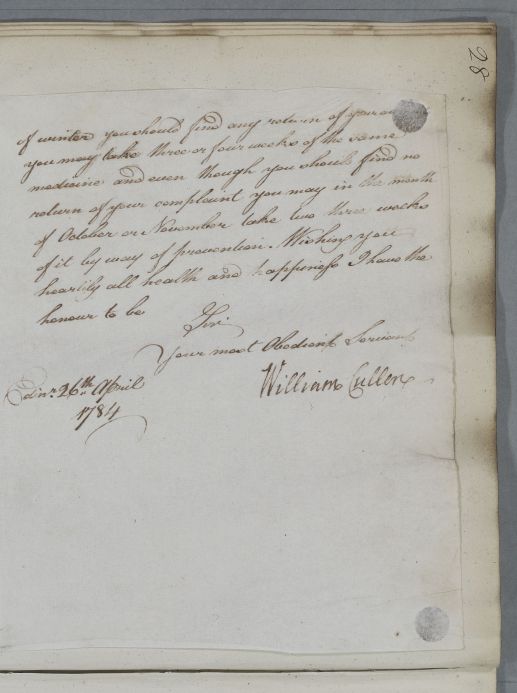 28
of winter you should find any return of your
you may take three or four weeks of the same
medicine and even though you should find no
return of your complaint you may in the month
of October or November take two three weeks
of it by way of prevention. Wishing you
heartily all health and happiness I have the
honour to be
Sir
Your most Obedient Servant
William Cullen
Edinr. 26th April
1784